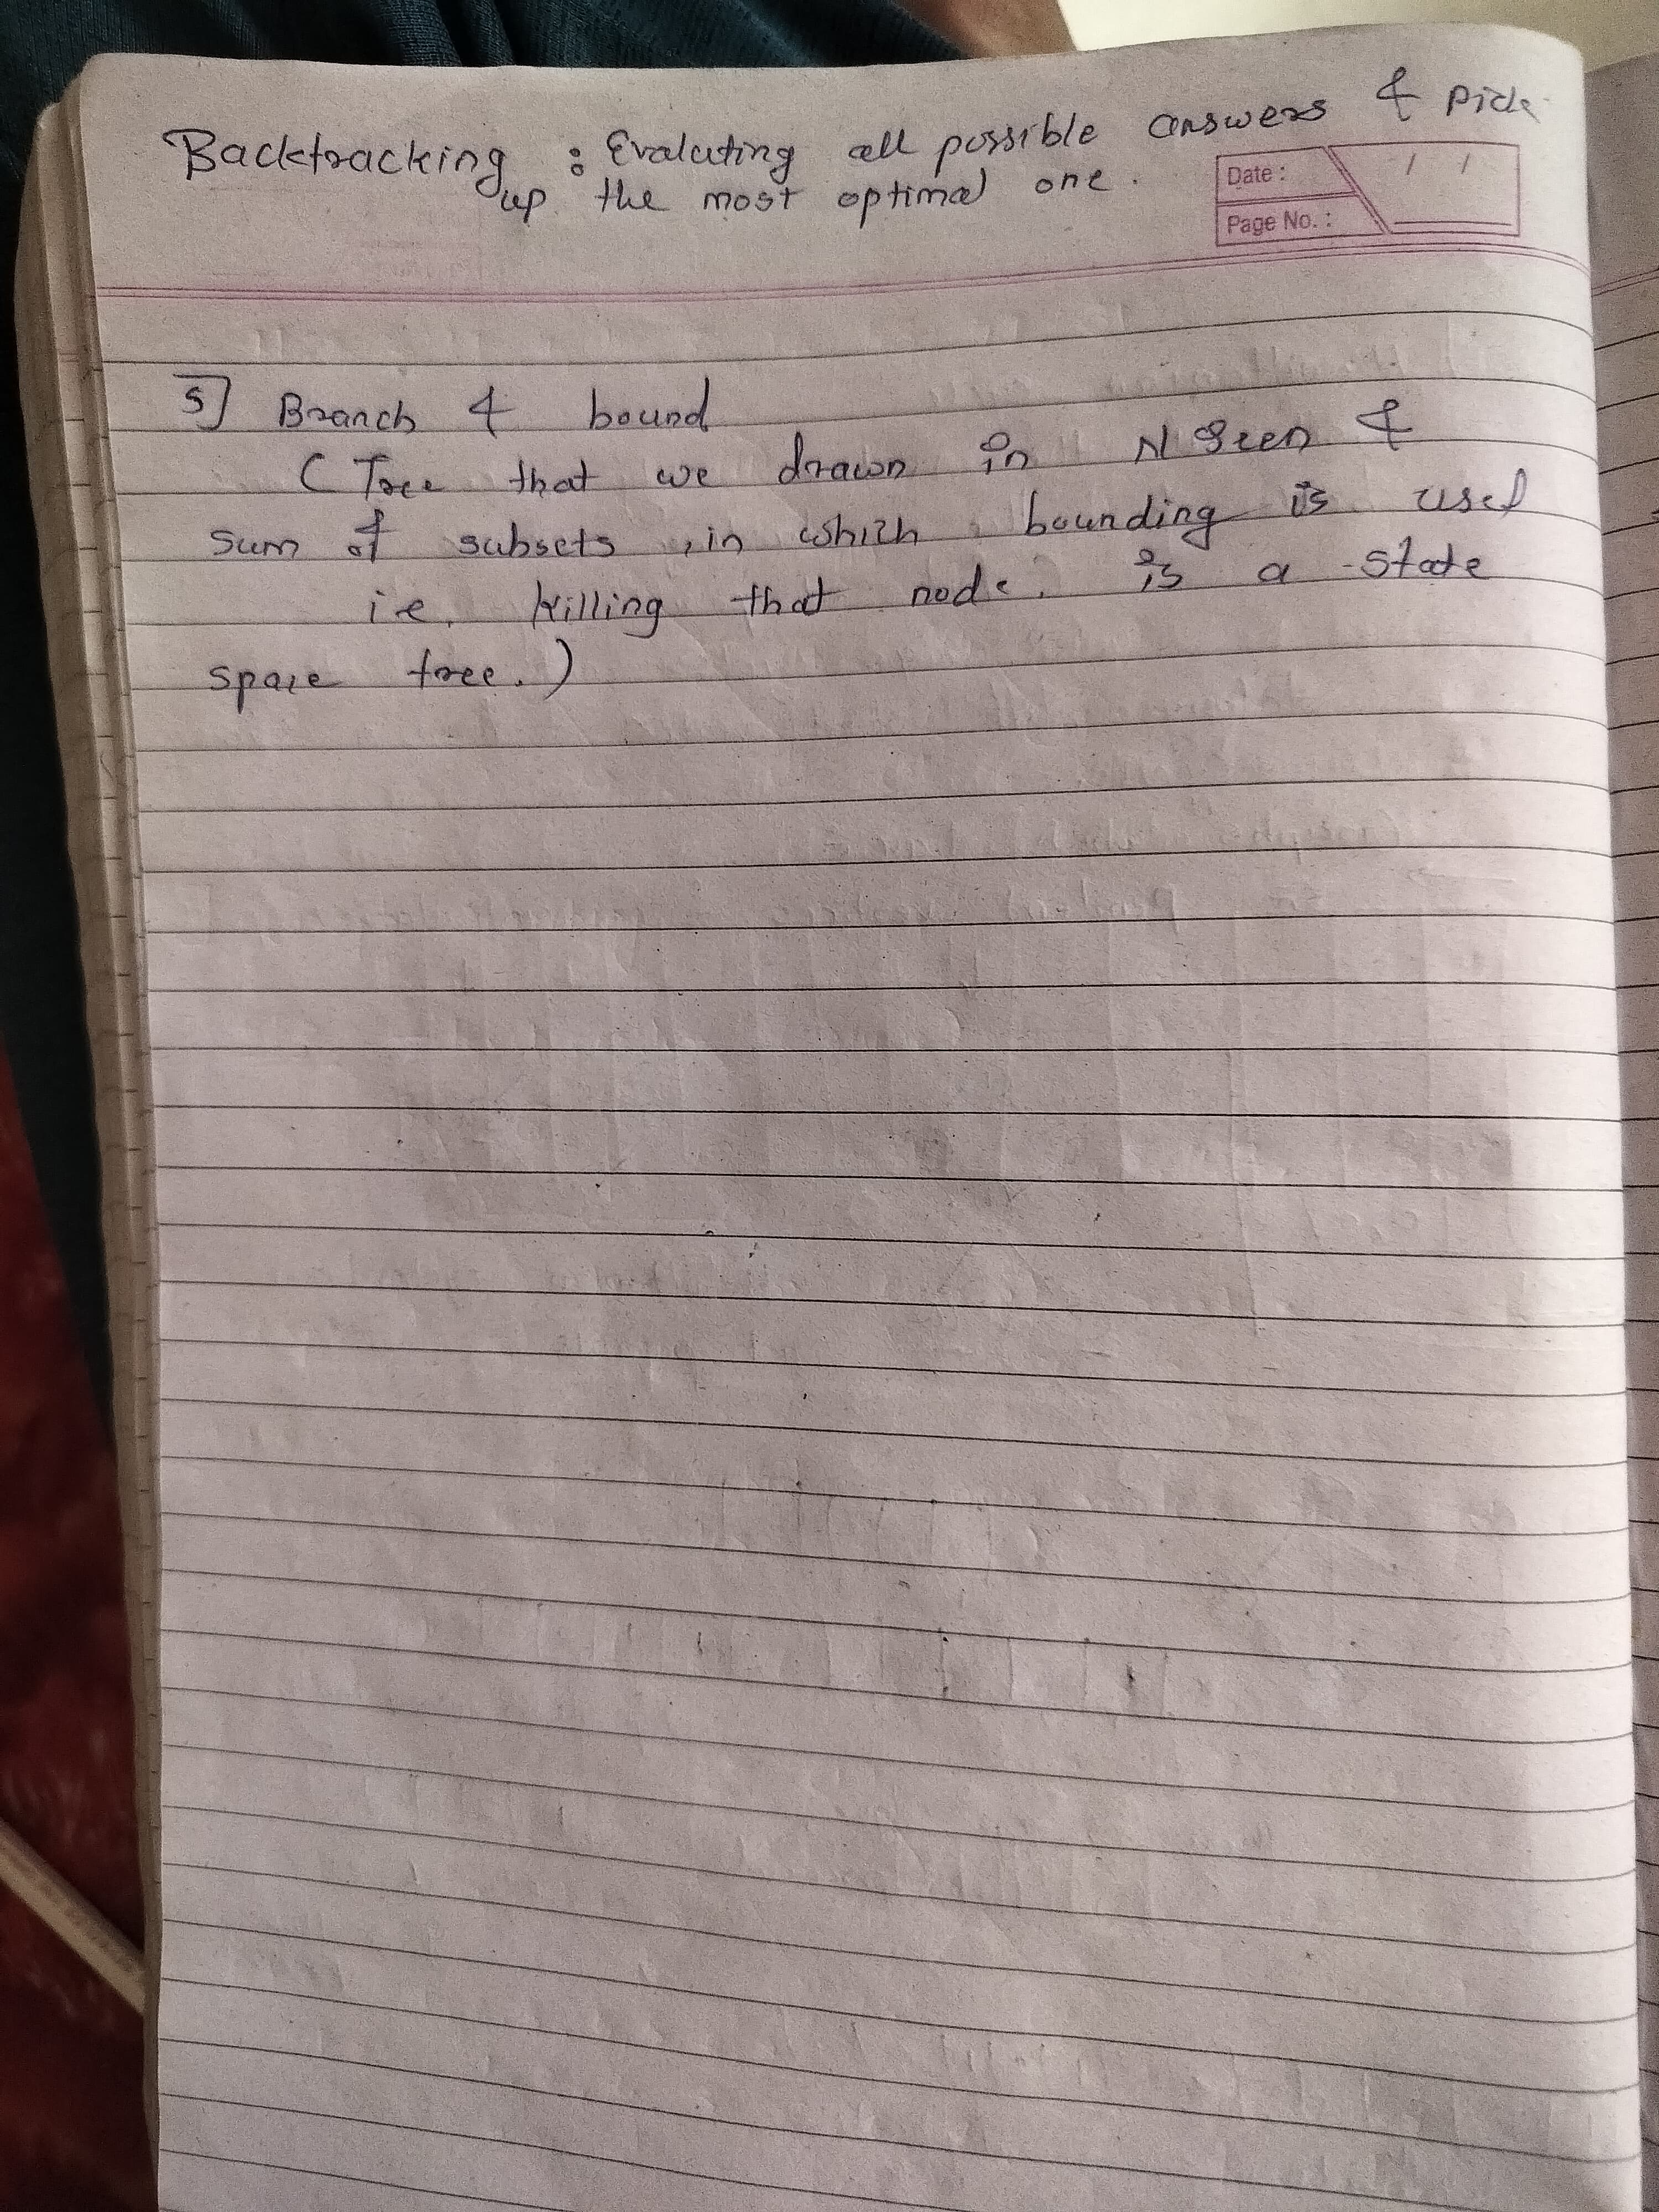 Backtracking : Evaluting all possible answers & pick
up the most optimal one.
Date : / /
Page No. :
5] Branch & bound
( Tree that we drawn in N Queen &
sum of subsets, in which bounding is used
i.e. killing that node. is a state
space tree. )